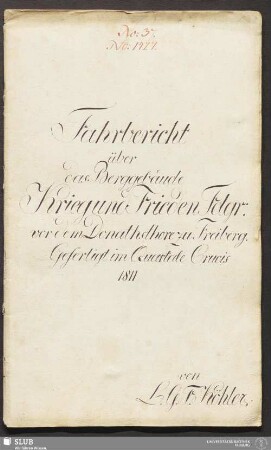 No: 3.
Fahrbericht
über
das Berggebäude
Krieg und Frieden Fdgr.
vor dem Donathsthore zu Freiberg.
Gefertigt im Quartale Crucis
1811
von
Köhler.
SLUB